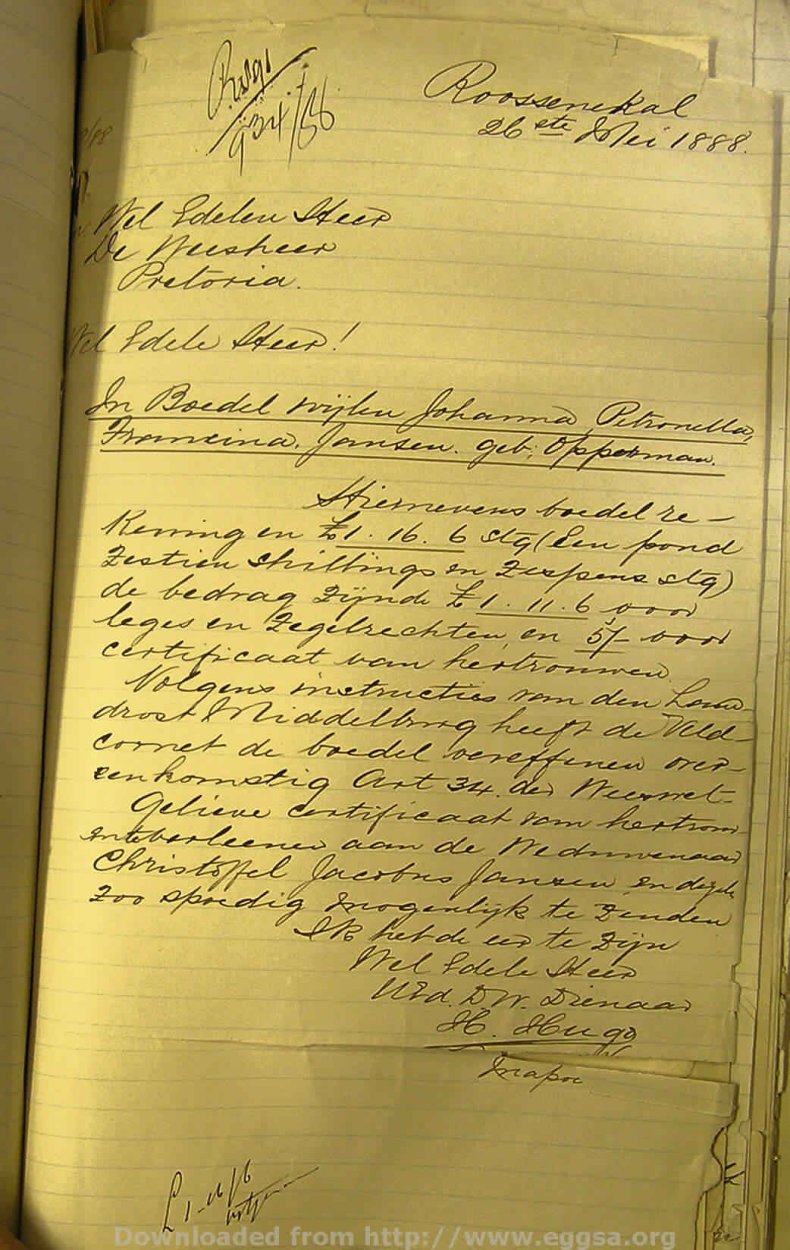 934/86
Roossenekal
26 ste Mei 1888.
Wel Edelen Heer
De Weesheer
Pretoria.
Wel Edele Heer!
In Boedel wijlen Johanna Petronella,
Francina Jansen. geb; Opperman.
Hiernevens boedel re-
kening en £1. 16. 6 Stg (Een pond
Zestien Shillings en Zespens Stg)
de bedrag Zijnde £1. 11. 6 voor
leges en Zegelrechten, en 5/- voor
certificaat van hertrouwen.
Volgens instructies van den Land-
drost Middelburg heeft de Veld-
cornet de boedel vereffenen over-
eenkomstig Art 34. der Weeswet.
Gelieve certificaat van hertrouw
te verleenen aan de Weduwenaar
Christoffel Jacobus Jansen en
zoo spoedig mogenlijk te Zenden
Ik heb de eer te Zijn
Wel Edele Heer
UEd. DW. Dienaar
H. Hugo
£1-16/6
Downloaded from http://www.eggsa.org